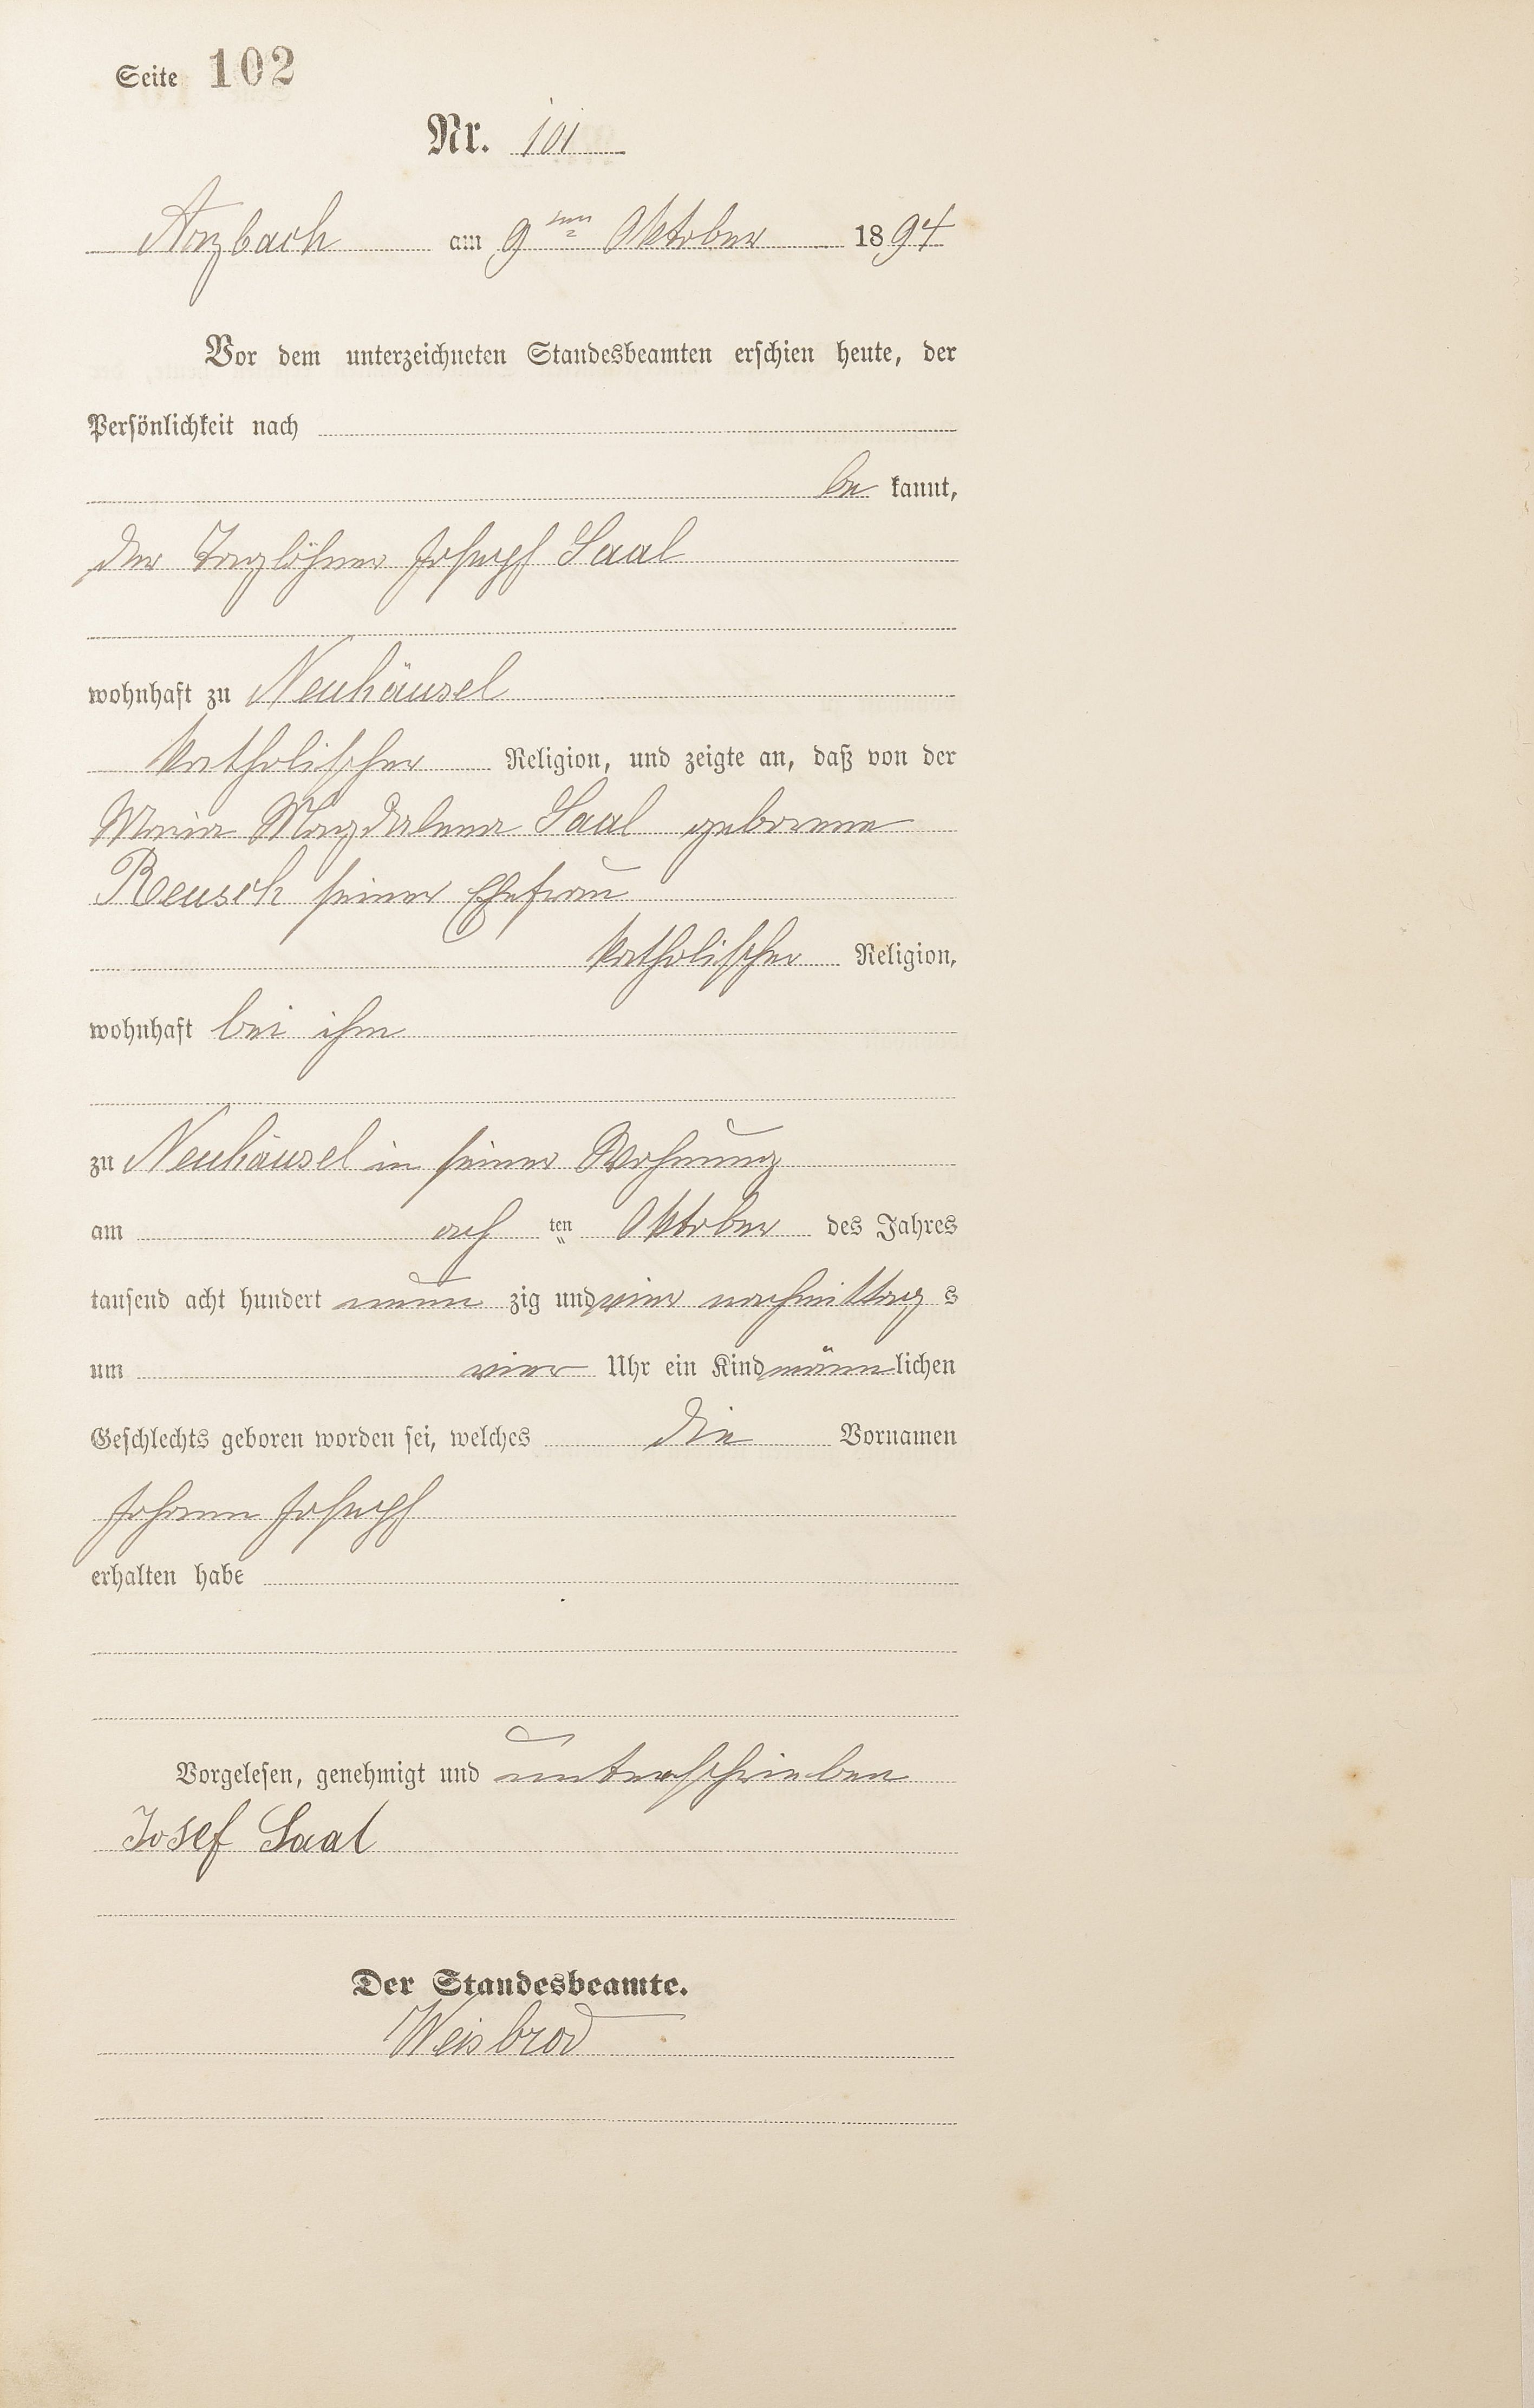 Seite 102
Nr. 101
Arzbach am 9ten Oktober 1894
Vor dem unterzeichneten Standesbeamten erschien heute, der
Persönlichkeit nach
be kannt,
der Taglöhner Joseph Saal
wohnhaft zu Neuhäusel
katholischer Religion, und zeigte an, daß von der
Maria Magdalena Saal geborene
Reusch seiner Ehefrau
katholischer Religion,
wohnhaft bei ihm
zu Neuhäusel in seiner Wohnung
am ach ten Oktober des Jahres
tausend acht hundert neun zig und vier nachmittag s
um vier Uhr ein Kind männ lichen
Geschlechts geboren worden sei, welches die Vornamen
Johann Joseph
erhalten habe
Vorgelesen, genehmigt und unterschrieben
Josef Saal
Der Standesbeamte.
Weisbrod